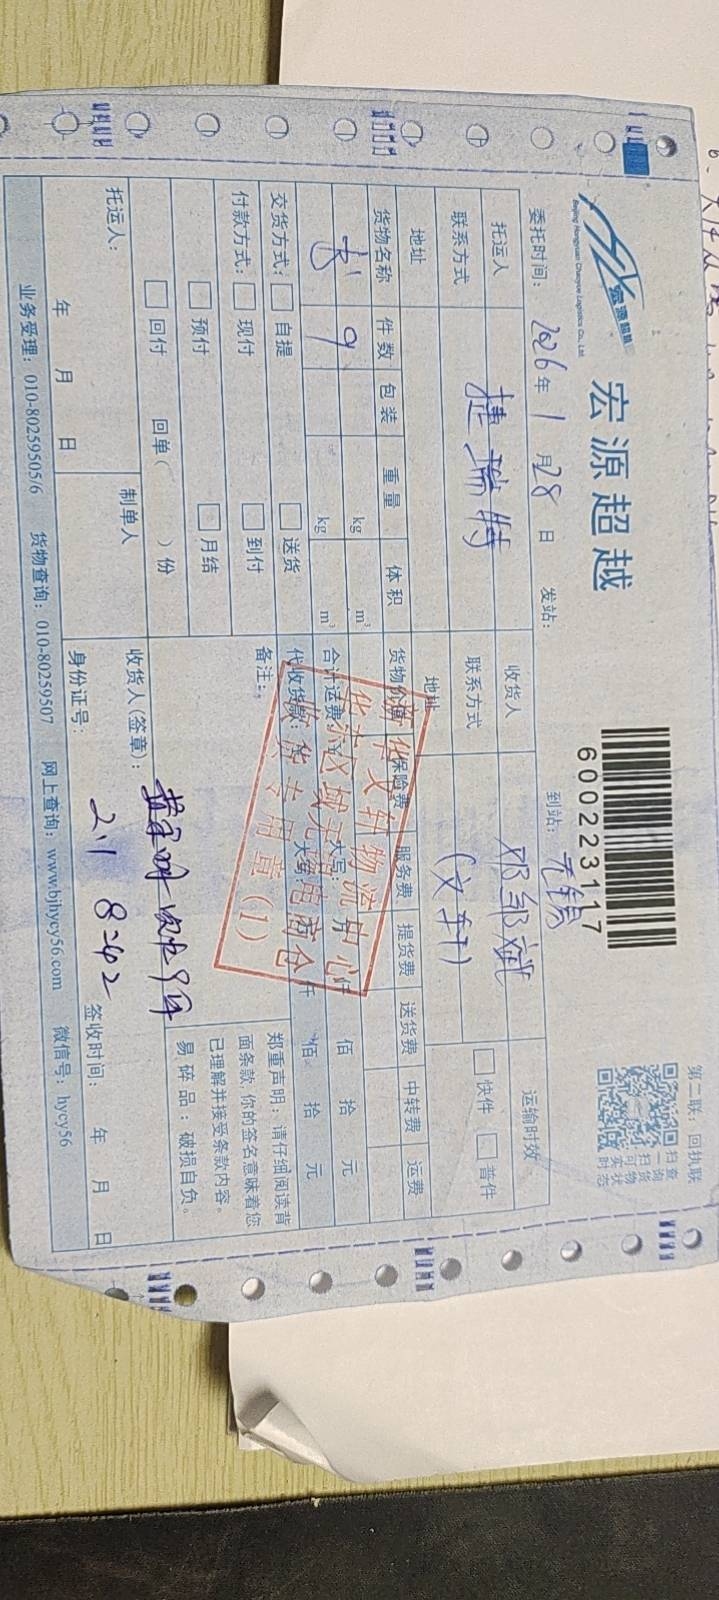 宏源超越
Beijing Hongyuan Chaoyue Logistics Co., Ltd.
宏源超越
600223117
第二联：回执联
扫查
一询
扫货
可物
实状
时态
委托时间：2026年1月28日 发站： 到站：无锡
托运人 捷瑞特 收货人 邓邹斌 运输时效
联系方式 联系方式 (文轩) 快件 普件
地址 地址
货物名称 件数 包装 重量 体积 货物价值 保险费 服务费 提货费 送货费 中转费 运费
书 9 kg m³
kg m³ 合计运费： 大写： 仟 佰 拾 元
交货方式： 自提 送货 代收货款： 大写： 仟 佰 拾 元
付款方式： 现付 到付 备注：
预付 月结
回付 回单( )份
郑重声明：请仔细阅读背
面条款，你的签名意味着您
已理解并接受条款内容。
易碎品：破损自负。
新华文轩物流中心
华东区域无锡电商仓
收货专用章(1)
托运人： 制单人 收货人(签章)：
年 月 日 身份证号： 2.1 8242 签收时间： 年 月 日
业务受理：010-80259505/6 货物查询：010-80259507 网上查询：www.bjhycy56.com 微信号：hycy56